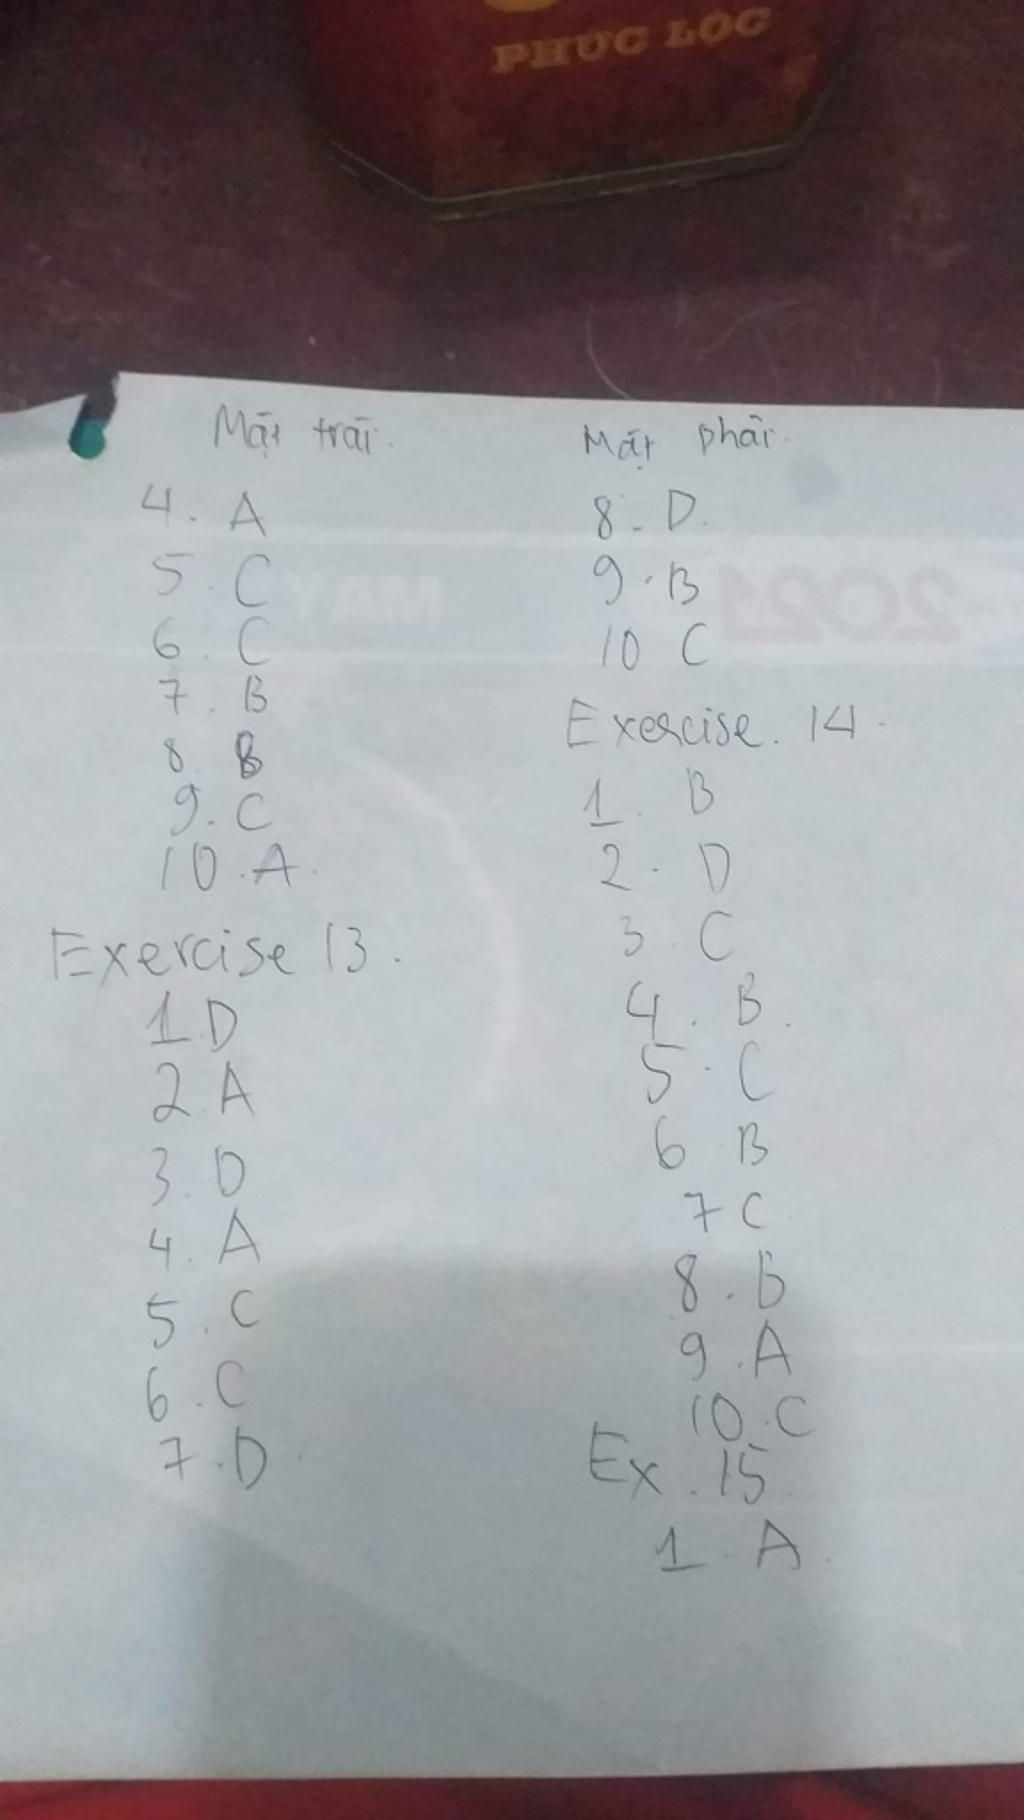 PHÚC LỘC
Mặt trái.
4. A
5. C
6. C
7. B
8. B
9. C
10. A.
Exercise 13.
1. D
2. A
3. D
4. A
5. C
6. C
7. D
Mặt phải.
8. D.
9. B
10 C
Exercise. 14.
1. B
2. D
3. C
4. B.
5. C
6. B
7 C
8. B
9. A
10. C
Ex. 15.
1. A.
MAY
2021